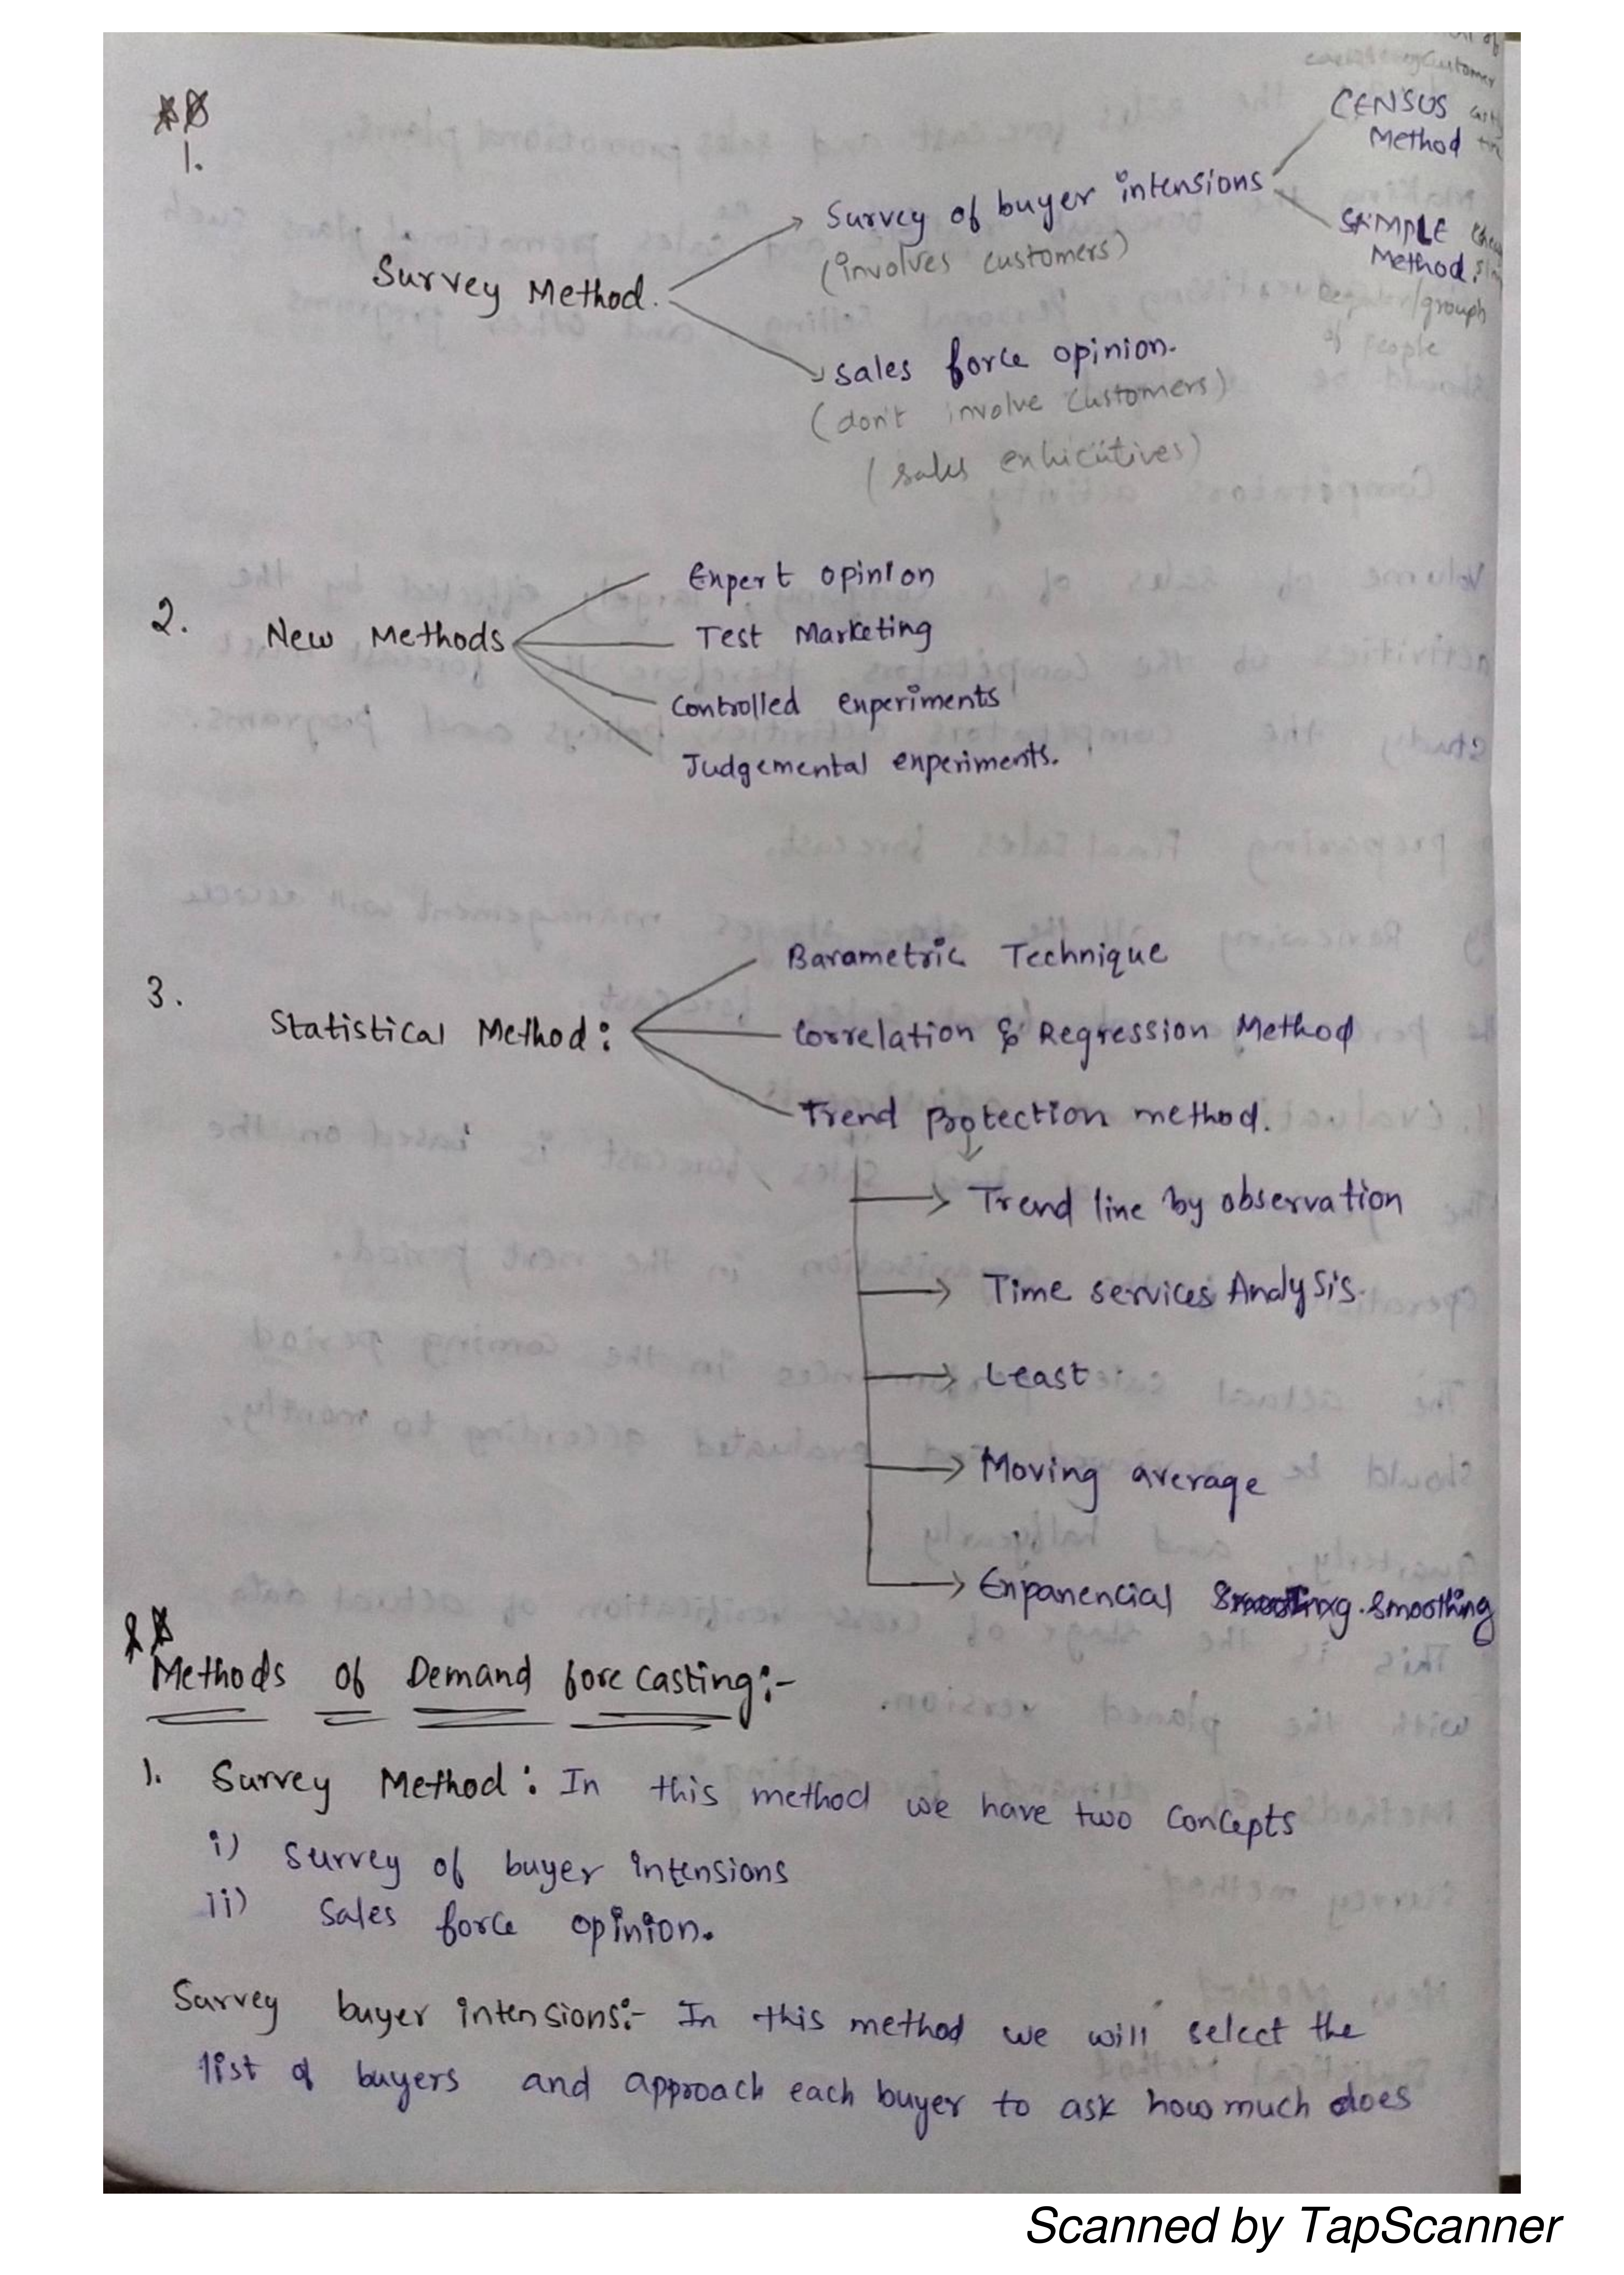 1.
CENSUS
Method
Survey of buyer intensions
(involves customers)
SAMPLE
Method.
/group
of people
Survey Method.
Sales force opinion.
(don't involve customers)
(sales exhicutives)
2.
New Methods
Expert opinion
Test Marketing
Controlled experiments
Judgemental experiments.
3.
Statistical Method:
Barametric Technique
Correlation & Regression Method
Trend Protection method.
Trend line by observation
Time services Analysis.
Least
Moving average
Expanencial smoothing
Methods of Demand forecasting:-
1. Survey Method: In this method we have two concepts
i) survey of buyer intensions
ii) Sales force opinion.
Survey buyer intensions:- In this method we will select the
list of buyers and approach each buyer to ask how much does
Scanned by TapScanner